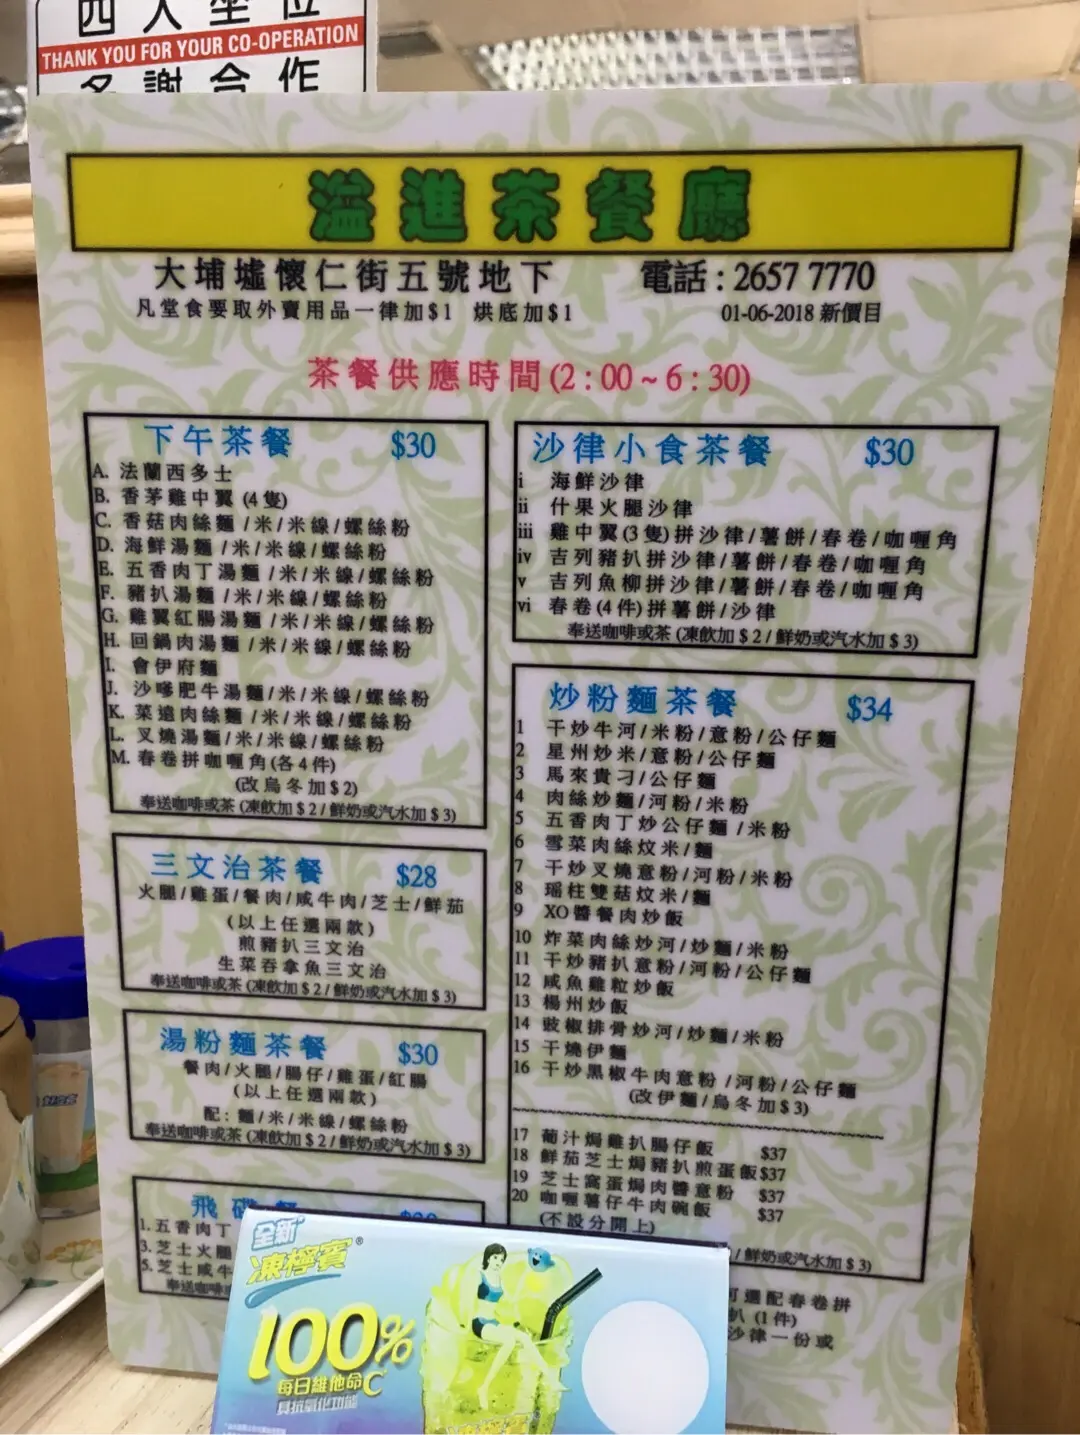 四人坐位
THANK YOU FOR YOUR CO-OPERATION
多謝合作
溢進茶餐廳
大埔墟懷仁街五號地下 電話 : 2657 7770
凡堂食要取外賣用品一律加$1 烘底加$1 01-06-2018 新價目
茶餐供應時間(2 : 00 ~ 6 : 30)
下午茶餐 $30
A. 法蘭西多士
B. 香茅雞中翼 (4隻)
C. 香菇肉絲麵/米/米線/螺絲粉
D. 海鮮湯麵/米/米線/螺絲粉
E. 五香肉丁湯麵/米/米線/螺絲粉
F. 豬扒湯麵/米/米線/螺絲粉
G. 雞翼紅腸湯麵/米/米線/螺絲粉
H. 回鍋肉湯麵/米/米線/螺絲粉
I. 會伊府麵
J. 沙嗲肥牛湯麵/米/米線/螺絲粉
K. 菜遠肉絲麵/米/米線/螺絲粉
L. 叉燒湯麵/米/米線/螺絲粉
M. 春卷拼咖喱角(各4件)
(改烏冬加$2)
奉送咖啡或茶 (凍飲加$2/鮮奶或汽水加$3)
三文治茶餐 $28
火腿/雞蛋/餐肉/咸牛肉/芝士/鮮茄
(以上任選兩款)
煎豬扒三文治
生菜吞拿魚三文治
奉送咖啡或茶 (凍飲加$2/鮮奶或汽水加$3)
湯粉麵茶餐 $30
餐肉/火腿/腸仔/雞蛋/紅腸
(以上任選兩款)
配: 麵/米/米線/螺絲粉
奉送咖啡或茶 (凍飲加$2/鮮奶或汽水加$3)
飛碟餐
1. 五香肉丁
3. 芝士火腿
5. 芝士咸牛
奉送咖啡
沙律小食茶餐 $30
i 海鮮沙律
ii 什果火腿沙律
iii 雞中翼(3隻)拼沙律/薯餅/春卷/咖喱角
iv 吉列豬扒拼沙律/薯餅/春卷/咖喱角
v 吉列魚柳拼沙律/薯餅/春卷/咖喱角
vi 春卷(4件)拼薯餅/沙律
奉送咖啡或茶 (凍飲加$2/鮮奶或汽水加$3)
炒粉麵茶餐 $34
1 干炒牛河/米粉/意粉/公仔麵
2 星州炒米/意粉/公仔麵
3 馬來貴刁/公仔麵
4 肉絲炒麵/河粉/米粉
5 五香肉丁炒公仔麵/米粉
6 雪菜肉絲炆米/麵
7 干炒叉燒意粉/河粉/米粉
8 瑤柱雙菇炆米/麵
9 XO醬餐肉炒飯
10 炸菜肉絲炒河/炒麵/米粉
11 干炒豬扒意粉/河粉/公仔麵
12 咸魚雞粒炒飯
13 楊州炒飯
14 豉椒排骨炒河/炒麵/米粉
15 干燒伊麵
16 干炒黑椒牛肉意粉/河粉/公仔麵
(改伊麵/烏冬加$3)
17 葡汁焗雞扒腸仔飯 $37
18 鮮茄芝士焗豬扒煎蛋飯 $37
19 芝士窩蛋焗肉醬意粉 $37
20 咖喱薯仔牛肉碗飯 $37
(不設分開上)
/鮮奶或汽水加$3)
可選配春卷拼
扒 (1件)
沙律一份或
全新
凍檸賓®
100%
每日維他命C
具抗氧化功能